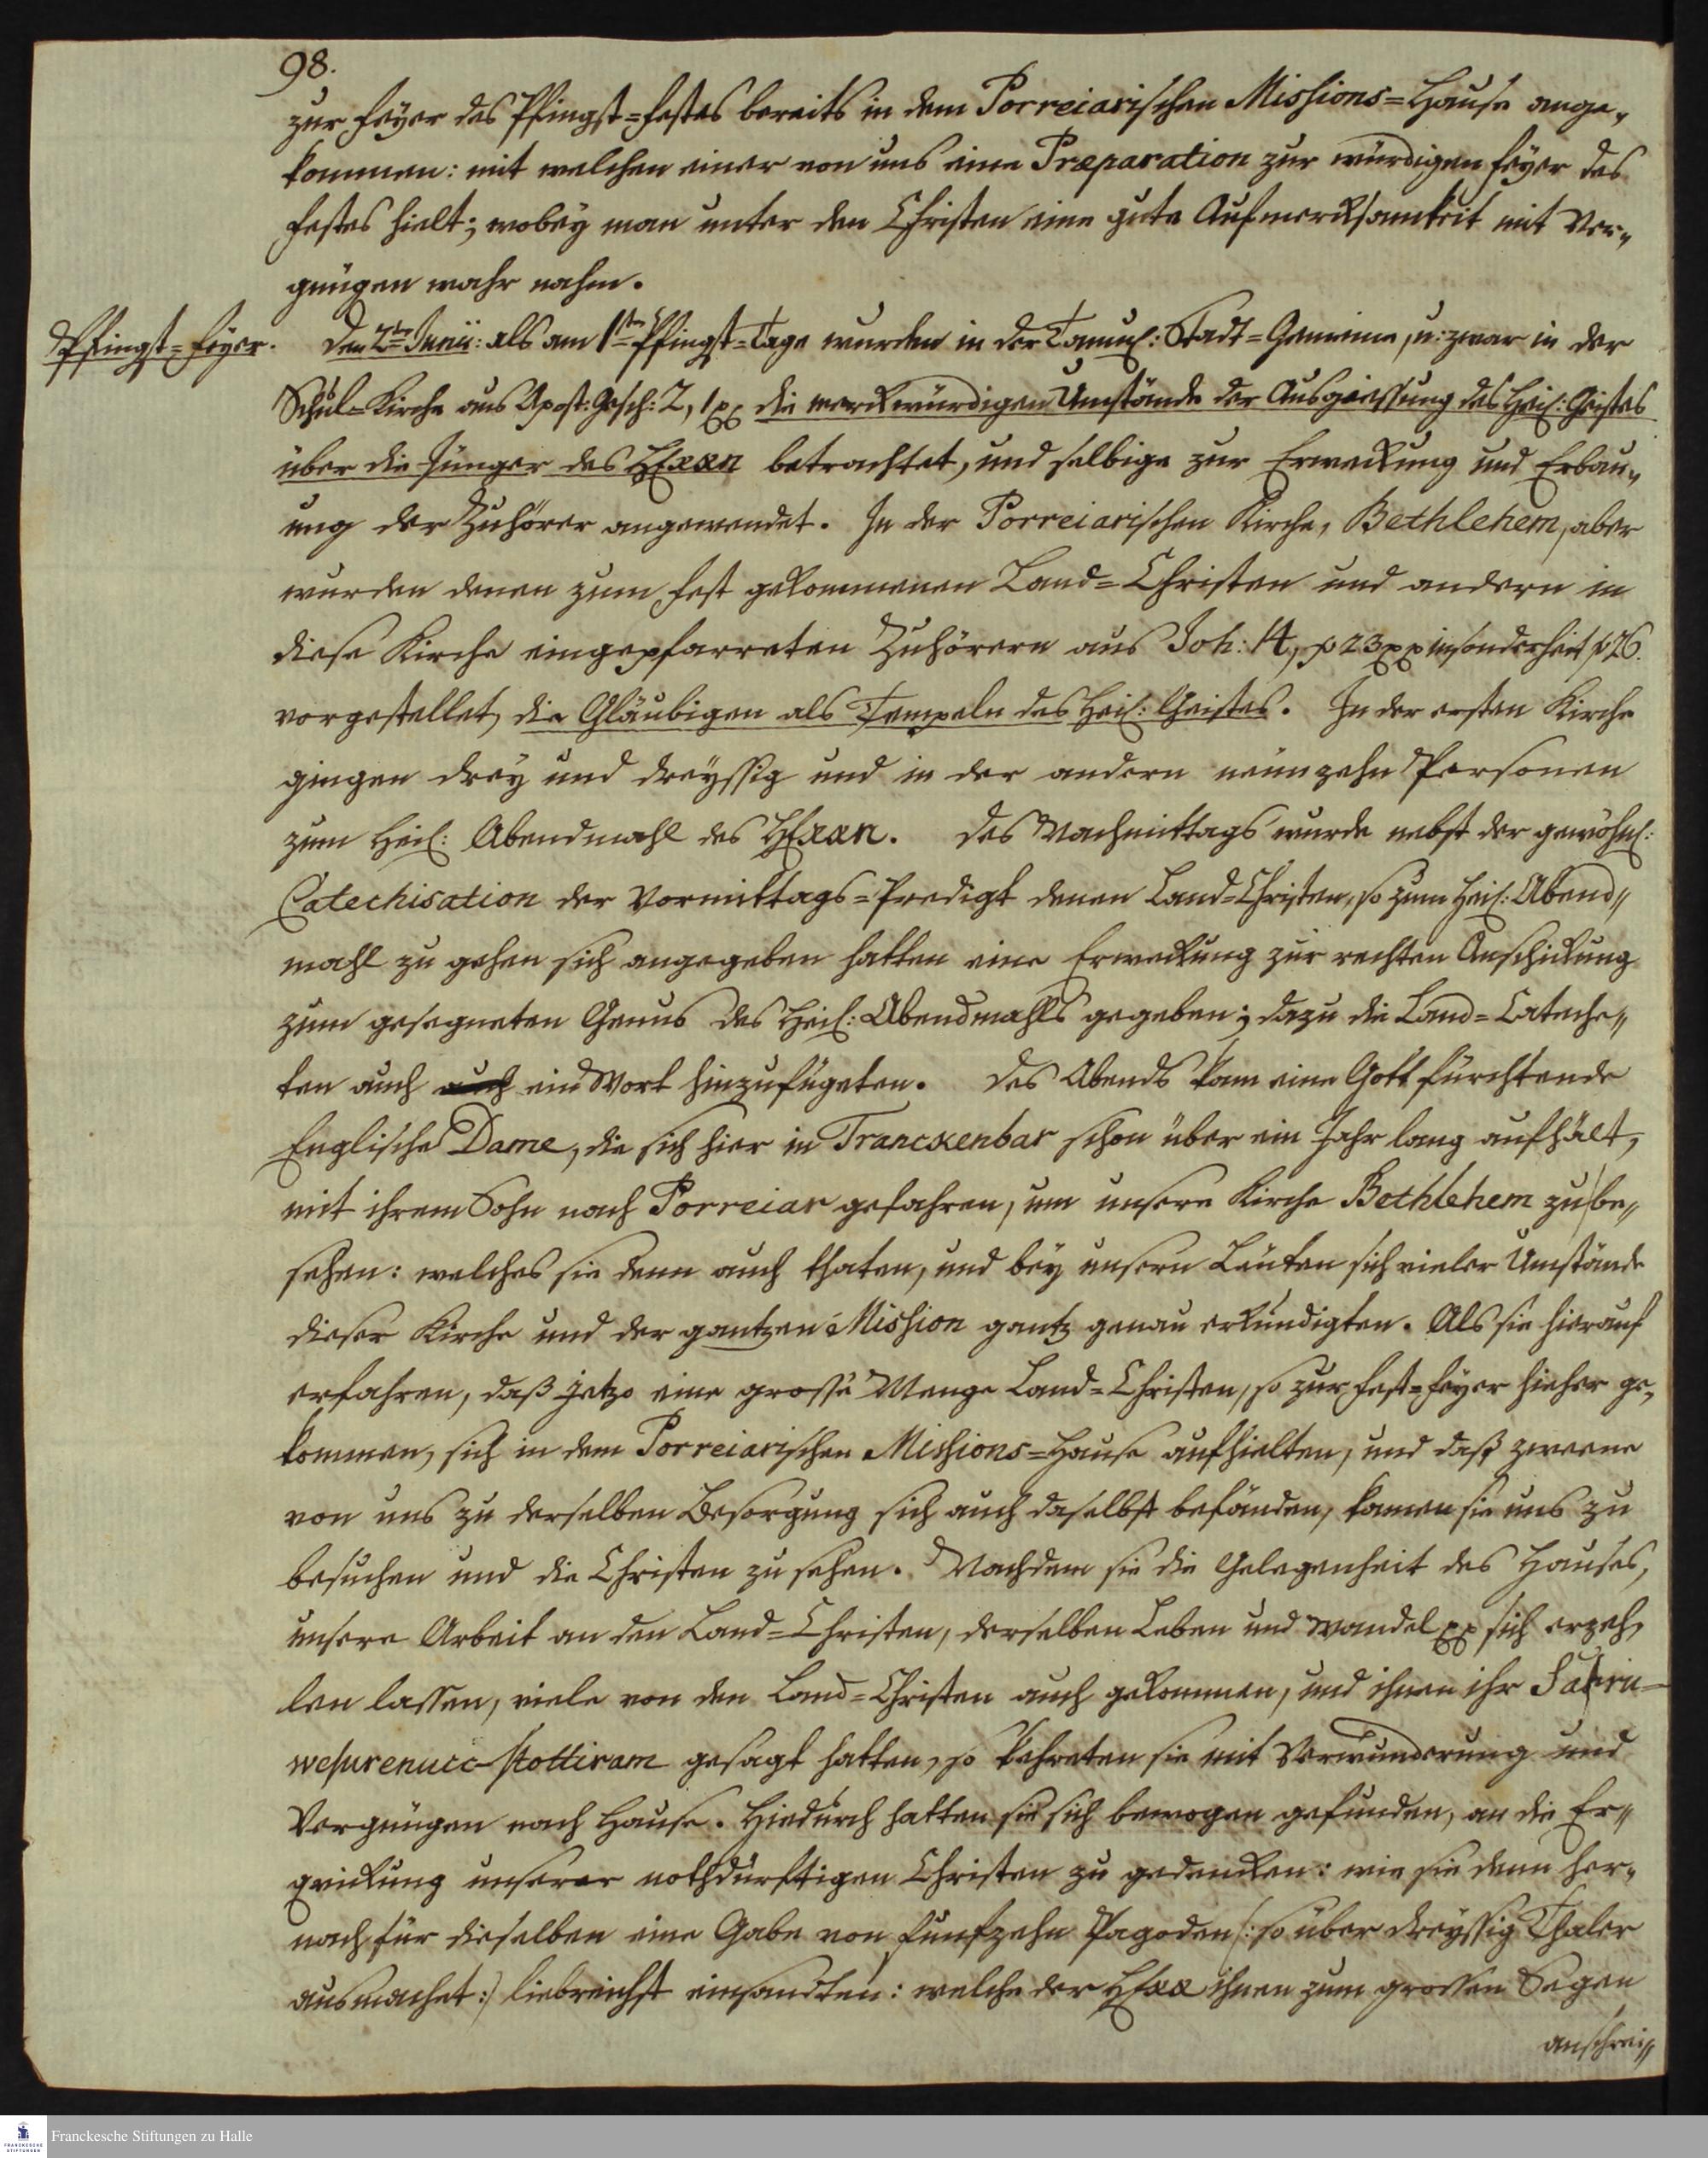 98.
zur Feyer des Pfingst=Festes bereits in dem Porreiarischen Missions=Hause ange„
kommen: mit welchen einer von uns eine Præparation zur würdigen Feyer des
Festes hielt; wobey man unter den Christen eine gute Aufmercksamkeit mit Ver„
gnügen wahr nahm.
Pfingst=Feyer.
Den 2ten Junii: als am 1ten Pfingst=Tage wurden in der Tamul: Stadt=Gemeine, u: zwar in der
Schul=Kirche aus Apost: Gesch: 2, 1 pp die merckwürdigen Umstände der Ausgiessung des Heil: Geistes
über die Jünger des HErrn betrachtet, und selbige zur Erweckung und Erbau„
ung der Zuhörer angewendet. In der Porreiarischen Kirche, Bethlehem, aber
wurden denen zum Fest gekommenen Land=Christen und andern in
diese Kirche eingepfarreten Zuhörern aus Joh: 14, v 23 pp insonderheit v 26.
vorgestellet, die Gläubigen als Tempeln des Heil: Geistes. In der ersten Kirche
gingen drey und dreyssig und in der andern neunzehn Personen
zum Heil: Abendmahl des HErrn. Des Nachmittags wurde nebst der gewöhnl:
Catechisation der Vormittags=Predigt denen Land=Christen, so zum Heil: Abend„
mahl zu gehen sich angegeben hatten eine Erweckung zur rechten Anschickung
zum gesegneten Genus des Heil: Abendmahls gegeben; dazu die Land=Cateche„
ten auch ein Wort hinzufügeten. Des Abends kam eine Gott fürchtende
Englische Dame, die sich hier in Tranckenbar schon über ein Jahr lang aufhält,
mit ihrem Sohn nach Porreiar gefahren, um unsere Kirche Bethlehem zu be„
sehen: welches sie denn auch thaten, und bey unsern Leuten sich vieler Umstände
dieser Kirche und der gantzen Mission gantz genau erkundigten. Als sie hierauf
erfahren, daß jetzo eine grosse Menge Land=Christen, so zur Fest=Feyer hieher ge„
kommen, sich in dem Porreiarischen Missions=Hause aufhielten, und daß zweene
von uns zu derselben Besorgung sich auch daselbst befänden, kamen sie uns zu
besuchen und die Christen zu sehen. Nachdem sie die Gelegenheit des Hauses,
unsere Arbeit an den Land=Christen, derselben Leben und Wandel pp sich erzeh„
len lassen, viele von den Land=Christen auch gekommen, und ihnen ihr
gesagt hatten, so kehreten sie mit Verwunderung und
Vergnügen nach Hause. Hiedurch hatten sie sich bewogen gefunden, an die Er„
quickung unserer nothdürftigen Christen zu gedencken: wie sie denn her„
nach für dieselben eine Gabe von funfzehn Pagoden (: so über dreyssig Thaler
ausmachet :) liebreichst einsandten: welche der HErr ihnen zum grossen Segen
anschrei„
Franckesche Stiftungen zu Halle